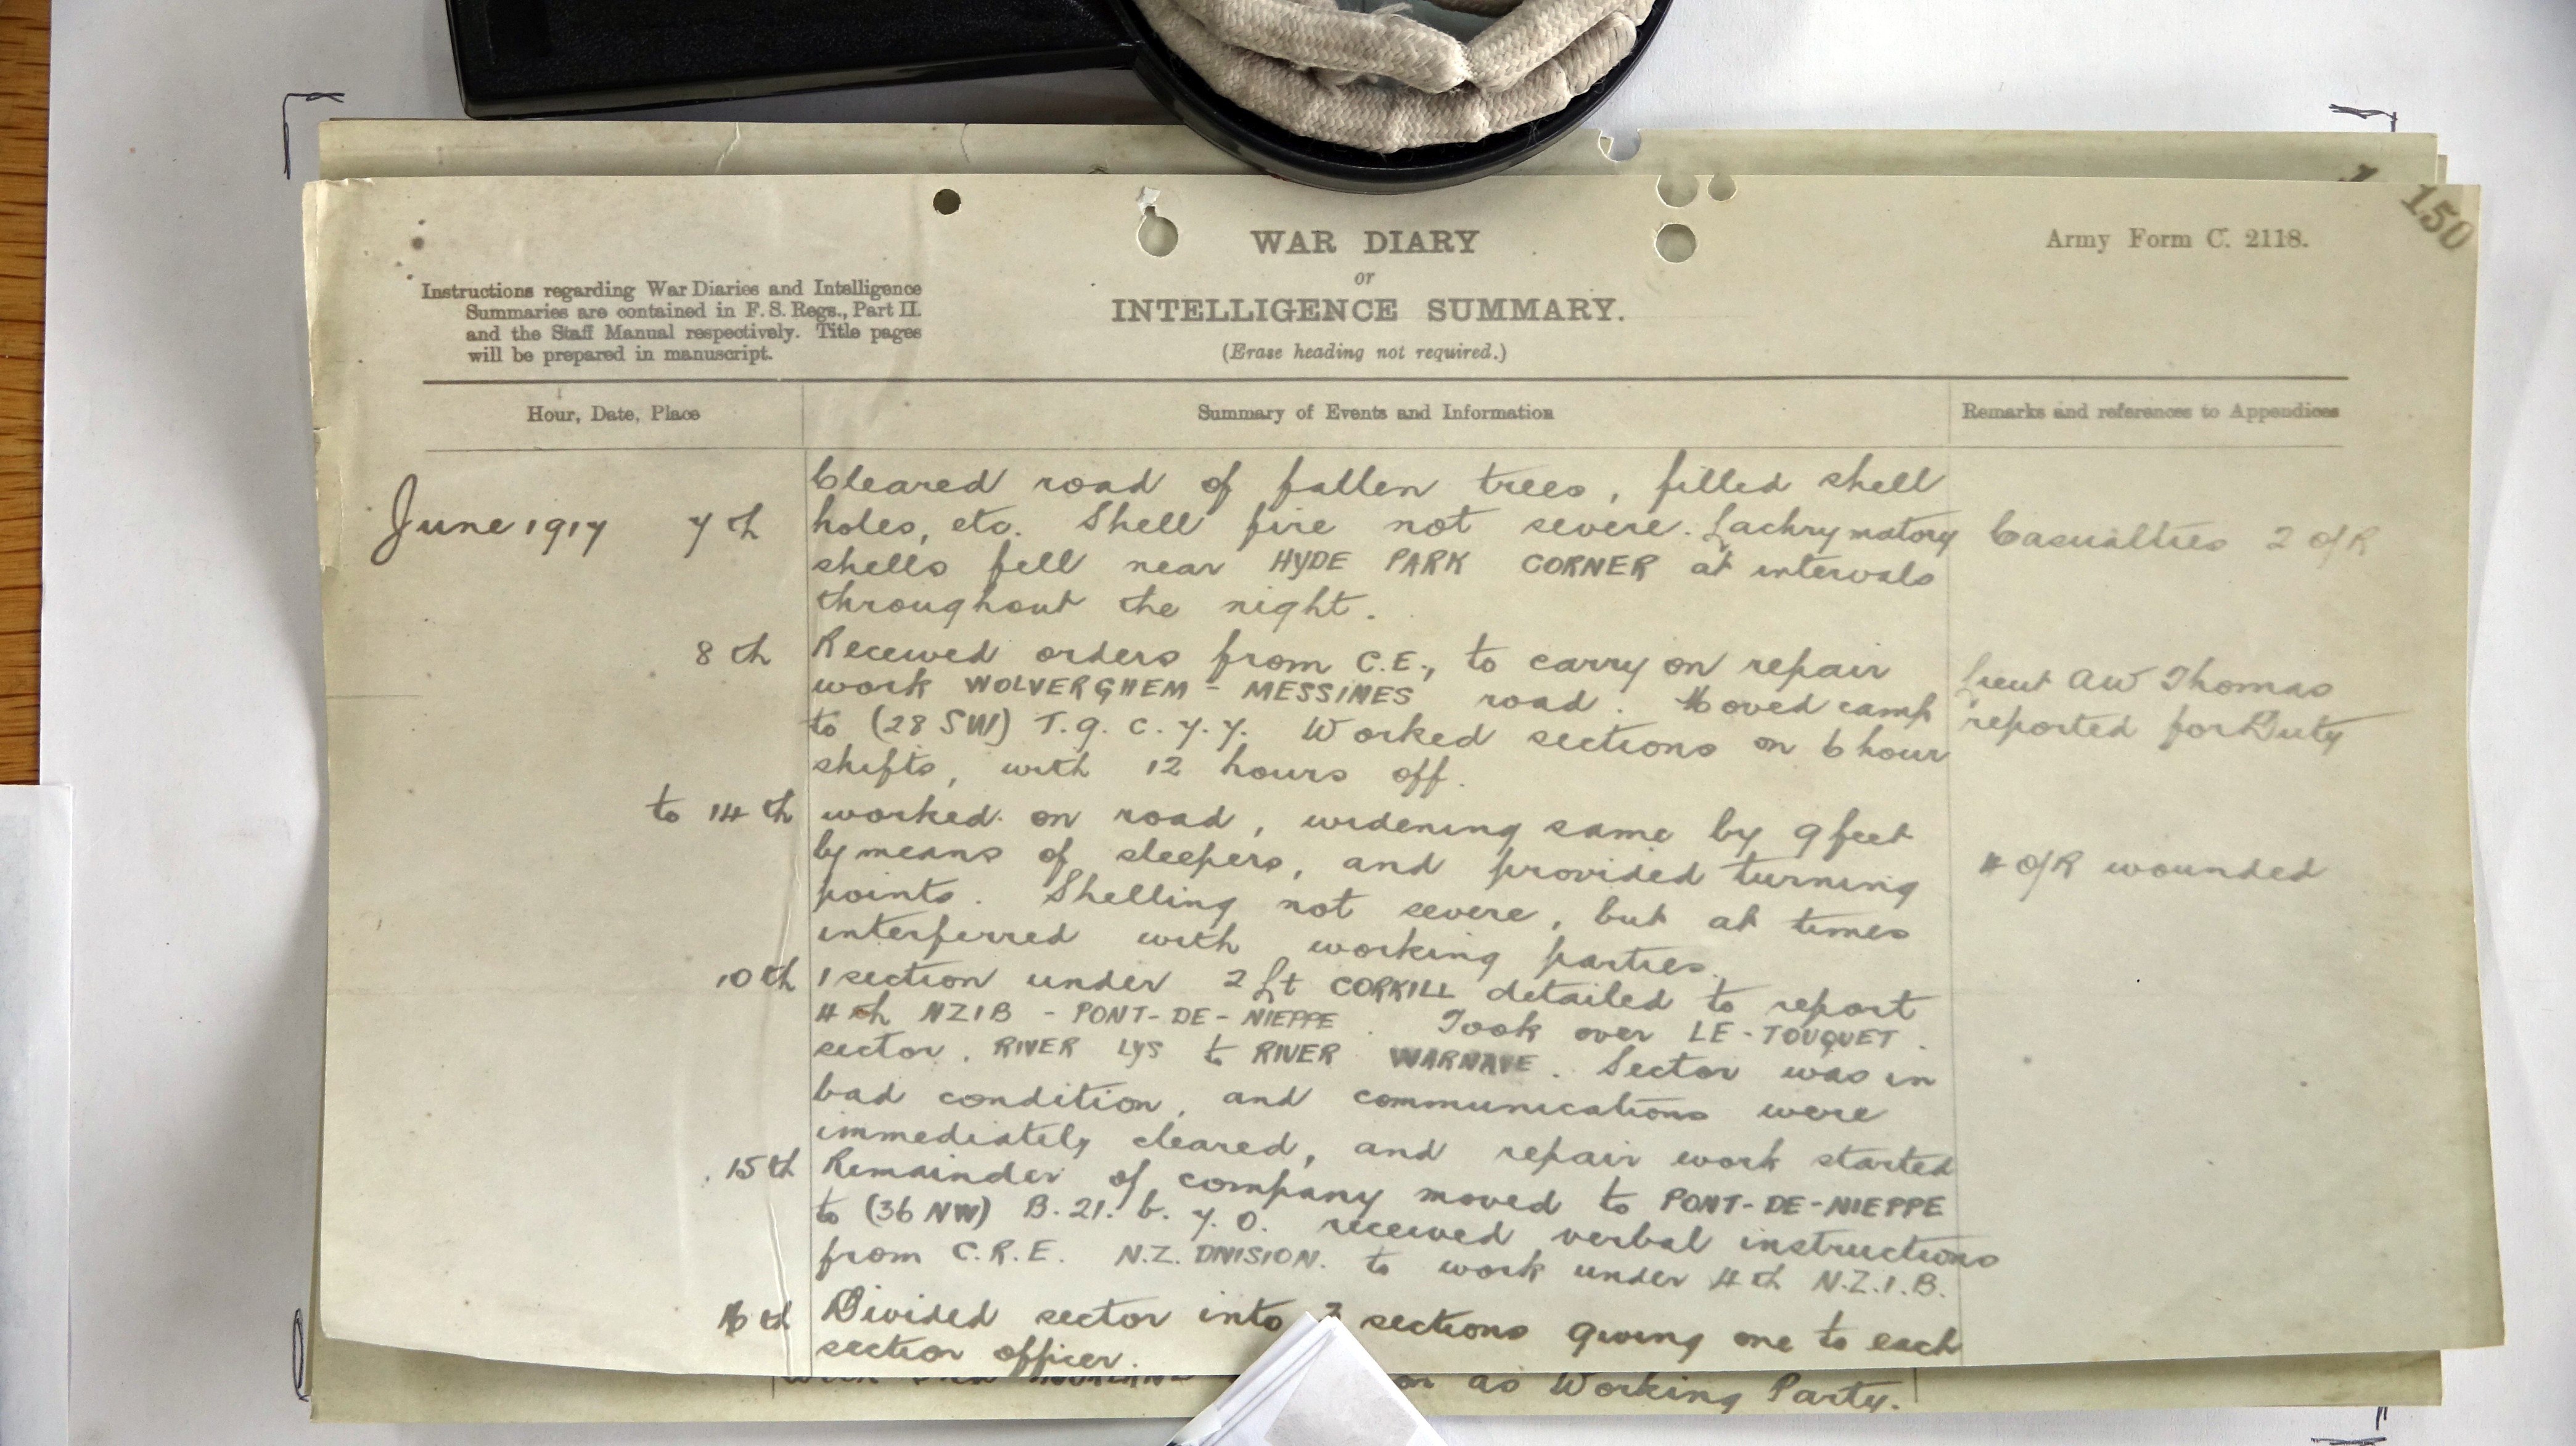 150
WAR DIARY
or
INTELLIGENCE SUMMARY.
(Erase heading not required.)
Army Form C. 2118.
Instructions regarding War Diaries and Intelligence
Summaries are contained in F. S. Regs., Part II.
and the Staff Manual respectively. Title pages
will be prepared in manuscript.
Hour, Date, Place
Summary of Events and Information
Remarks and references to Appendices
Cleared road of fallen trees, filled shell
June 1917 7th holes, etc. Shell fire not severe. Lachrymatory Casualties 2 O/R
shells fell near HYDE PARK CORNER at intervals
throughout the night.
8th Received orders from C.E., to carry on repair
work WOLVERGHEM - MESSINES road. Moved camp Lieut AW Thomas
to (28 SW) T. 9. C. 7. 7. Worked sections on 6 hour reported for Duty
shifts, with 12 hours off.
to 14th worked on road, widening same by 9 feet
by means of sleepers, and provided turning 4 O/R wounded
points. Shelling not severe, but at times
interferred with working parties.
10th 1 section under 2 Lt CORKILL detailed to report
4th NZIB - PONT-DE-NIEPPE. Took over LE-TOUQUET.
sector. RIVER LYS to RIVER WARNAVE. Sector was in
bad condition, and communications were
immediately cleared, and repair work started
15th Remainder of company moved to PONT-DE-NIEPPE
to (36 NW) B. 21. b. 7. 0. received verbal instructions
from C.R.E. N.Z. DIVISION. to work under 4th N.Z.I.B.
16th Divided sector into sections giving one to each
section officer.
as Working Party.